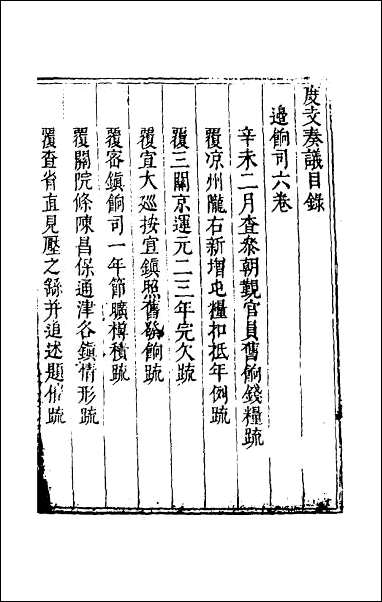 度支奏議目錄
邊餉司六卷
辛未二月查叅朝覲官員舊餉錢糧疏
覆涼州隴右新增屯糧扣抵年例疏
覆三關京運元二三年完欠疏
覆宜大巡按宜鎮照舊發餉疏
覆密鎮餉司一年節曠樽積疏
覆關院條陳昌保通津各鎮情形疏
覆查省直見壓之餘并追述題催疏